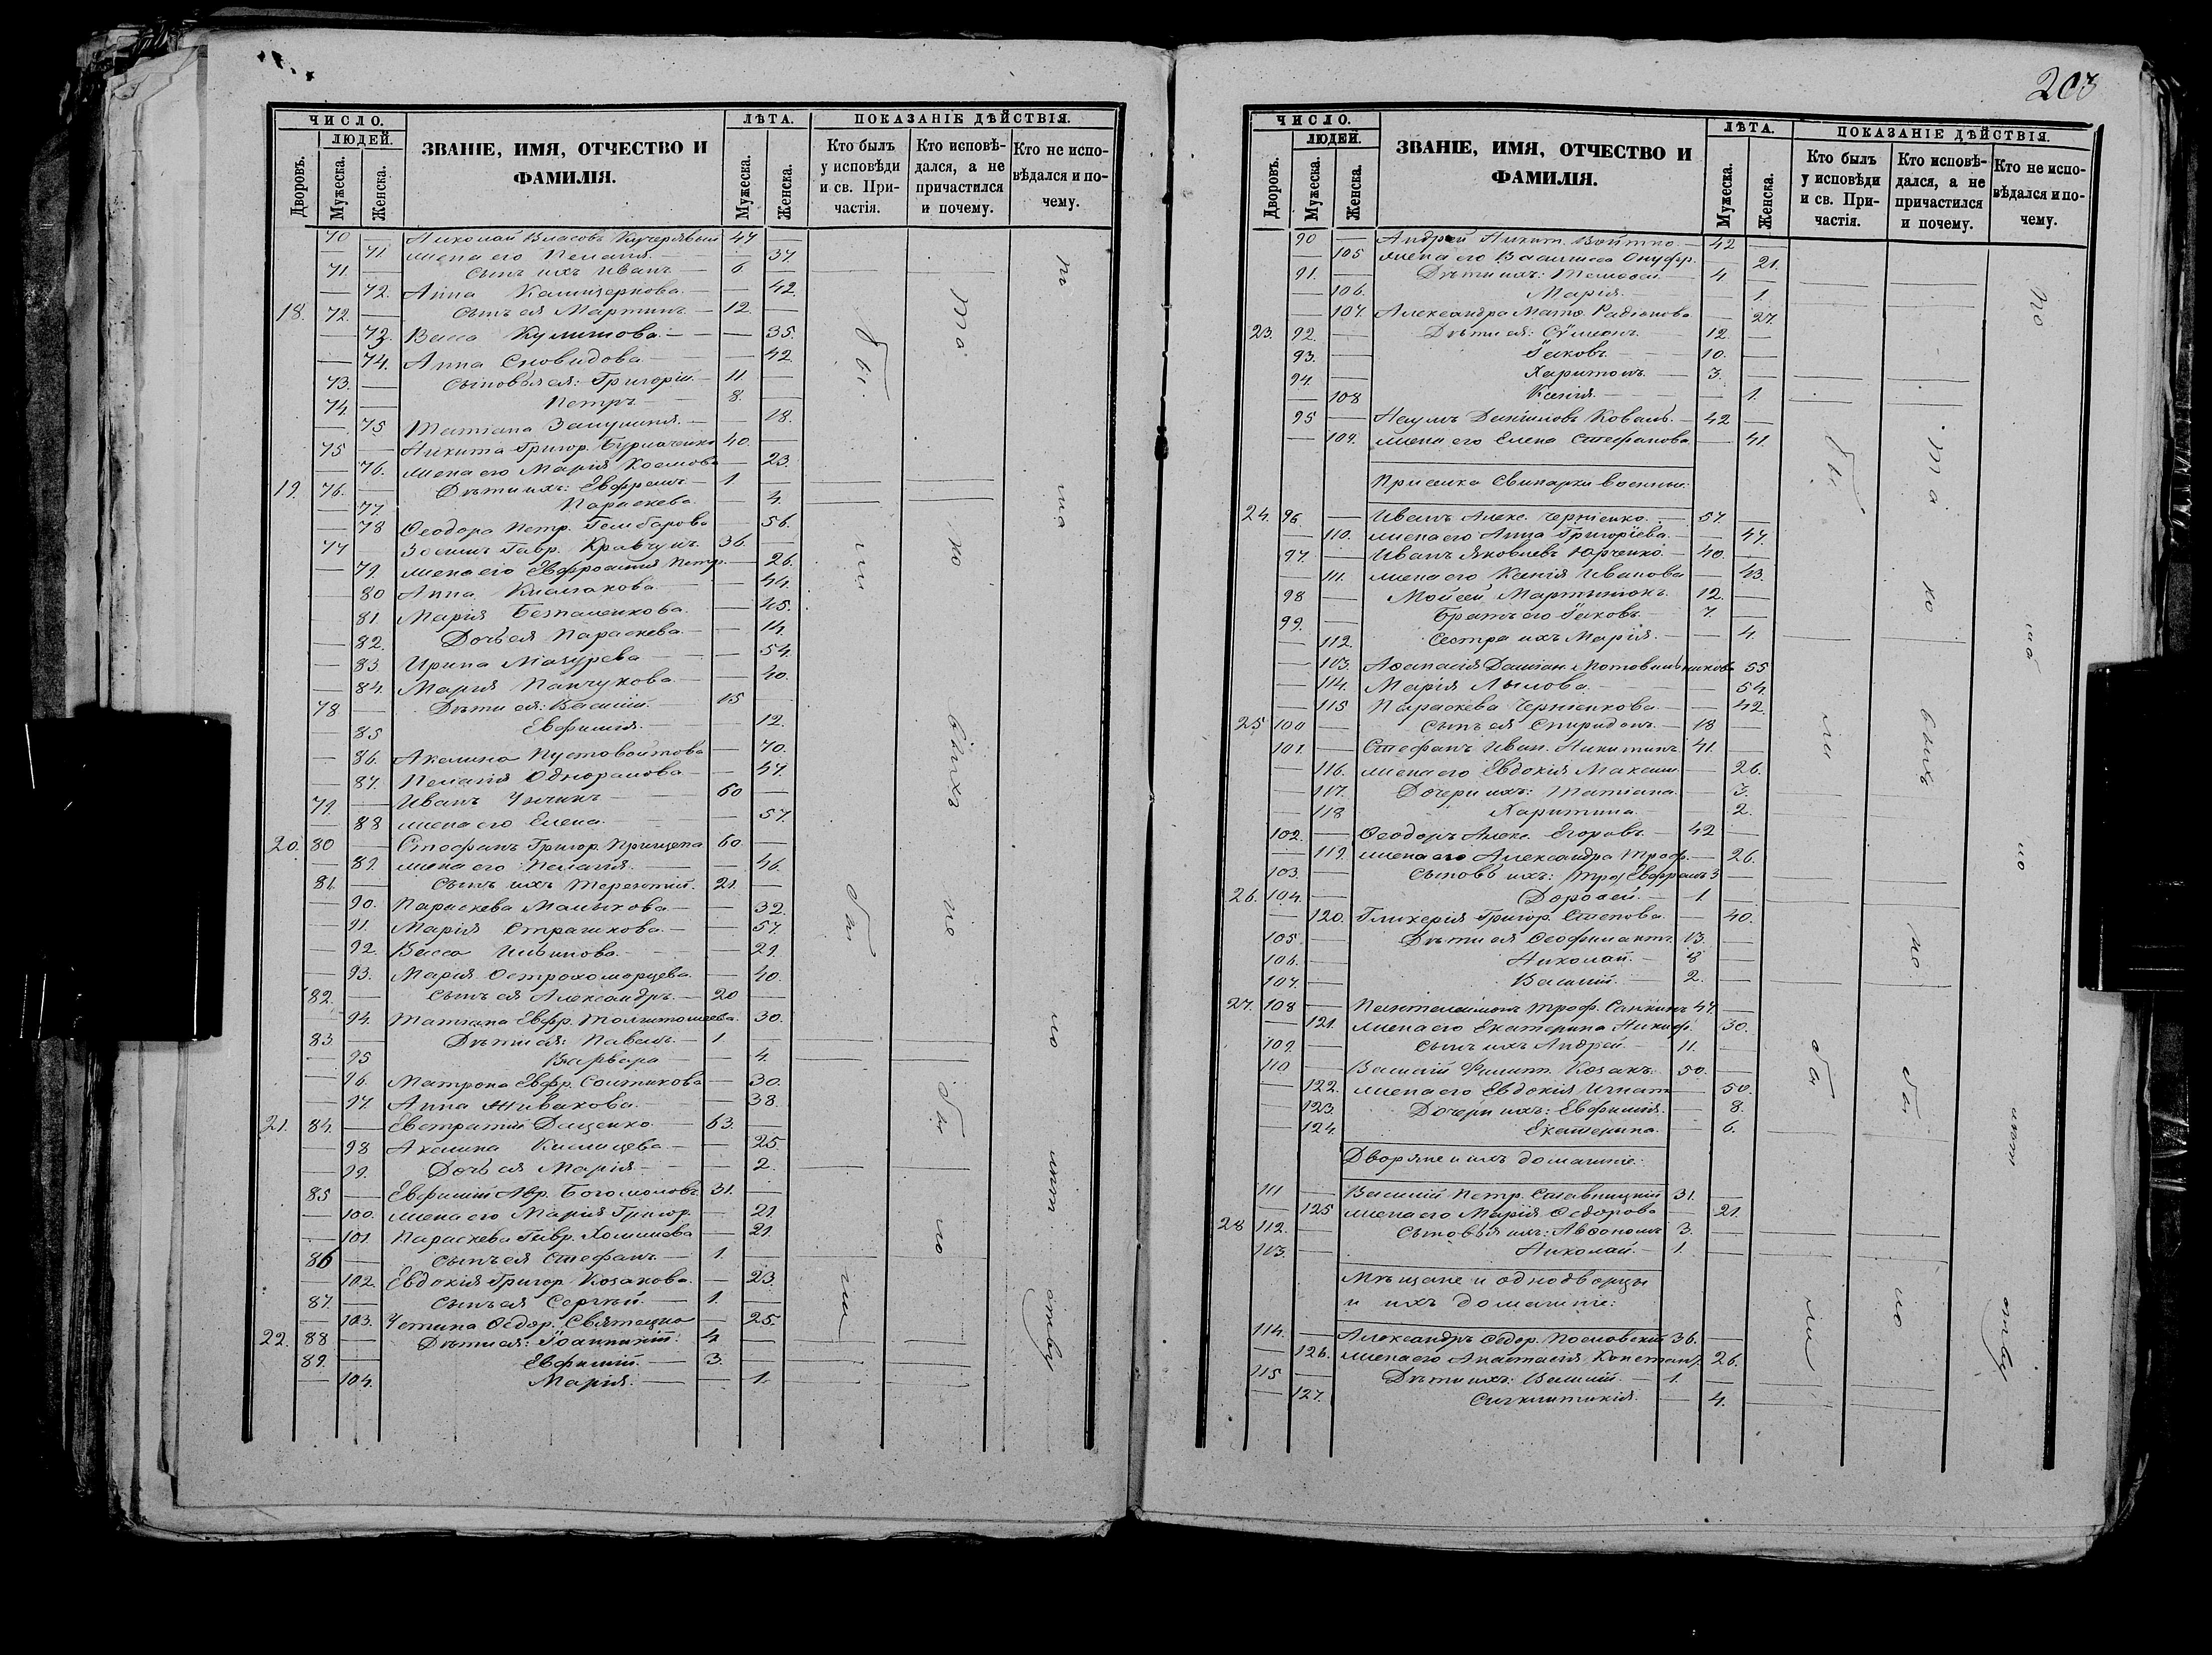 ЧИСЛО.
ЛЮДЕЙ.
Дворовъ.
Мужеска.
Женска.
ЗВАНІЕ, ИМЯ, ОТЧЕСТВО И
ФАМИЛІЯ.
ЛѢТА.
Мужеска.
Женска.
ПОКАЗАНІЕ ДѢЙСТВІЯ.
Кто былъ
у исповѣди
и св. При-
частія.
Кто исповѣ-
дался, а не
причастился
и почему.
Кто не испо-
вѣдался и по-
чему.
70 — Николай Власовъ Кучерявый 47 —
— 71 жена его Пелагія — 37.
71. — Сынъ ихъ Иванъ — 6 —
— 72. Анна — 42.
18. 72. — Сынъ ея Мартинъ — 12. —
— 73. Васса Кулишова — — 35.
— 74. Анна Сновидова — 42
73. — Сыновья ея: Григорій — 11. —
74. — Петръ — 8. —
— 75 Татіана — 18.
75 — Никита Григор. Бурлаченко 40. —
— 76. жена его Марія Космова — 23.
19. 76. — Дѣти ихъ: Евфремъ — 1 —
— 77. Параскева — 4.
— 78 Ѳеодора Петр. — 56.
77 — Зосимъ Гавр. Кравчукъ 36. —
— 79. жена его Евфросинія Петр. — 26.
— 80 Анна — 44.
— 81. Марія Безпаленкова — 45.
— 82. Дочь ея Параскева — — 14.
— 83 Ирина Мазурева — — 54.
— 84. Марія Панчукова — — 40.
78 — Дѣти ея: Василій — 15 —
— 85 Евфимія — — 12.
— 86. Акилина Пустовойтова — 70.
— 87. Пелагія — 47.
79. — Иванъ — 60 —
— 88 жена его Елена — — 57.
20. 80 — Стефанъ Григор. Прищепа 60. —
— 89. жена его Пелагія — 46.
81. — Сынъ ихъ Терентій. 21. —
— 90. Параскева Малыхова — — 32.
— 91. Марія Страшкова — — 57.
— 92. Васса — 29.
— 93. Марія — 40.
82. — Сынъ ея Александръ — 20 —
— 94. Татіана Евфр. — 30.
83. — Дѣти ея: Павелъ — 1 —
— 95 Варвара — — 4.
— 96. Матрона Евфр. Солтикова — 30.
— 97. Анна — 38.
21. 84. — Евстратій Даценко — 63. —
— 98 Акилина — 25
— 99. Дочь ея Марія — — 2.
85 — Евфимій Авр. Богомоловъ 31. —
— 100. жена его Марія Григор. — 21
— 101. Параскева Гавр. — 21
86 — Сынъ ея Стефанъ — 1. —
— 102 Евдокія Григор. Козакова — 23.
87. — Сынъ ея Сергій — 1. —
— 103. Устина Ѳедор. — 25.
22. 88 — Дѣти ея: Іоанникій: 4 —
89. — Евфимій — 3. —
— 104. Марія — — 1.
203
ЧИСЛО.
ЛЮДЕЙ.
Дворовъ.
Мужеска.
Женска.
ЗВАНІЕ, ИМЯ, ОТЧЕСТВО И
ФАМИЛІЯ.
ЛѢТА.
Мужеска.
Женска.
ПОКАЗАНІЕ ДѢЙСТВІЯ.
Кто былъ
у исповѣди
и св. При-
частія.
Кто исповѣ-
дался, а не
причастился
и почему.
Кто не испо-
вѣдался и по-
чему.
90 — Андрей Никит. Войтко — 42 —
— 105 жена его Василиса Онуфр. — 21.
91. — Дѣти ихъ: Тимоѳей — 4. —
— 106. Марія — — 1.
— 107. Александра Матѳ. Радіонова — 27.
23. 92. — Дѣти ея: Сѵмеонъ 12. —
93. — Іаковъ — 10. —
94. — Харитонъ — 3. —
— 108 Ксенія — — 1.
95 — Наумъ Даніиловъ Коваль — 42 —
— 109. жена его Елена Стефанова — 41.
Приселка Свинарки военные:
24. 96. — Иванъ Алекс. Черненко — 57. —
— 110. жена его Анна Григоріева — 47.
97. — Иванъ Яковлевъ Юрченко — 40. —
— 111. жена его Ксенія Иванова — 43.
98 — Мойсей Мартинюкъ 12. —
99. — Братъ его Іаковъ 7. —
— 112. Сестра ихъ Марія — — 4.
— 113. Аѳанасія Даміан. Мотовильникова 55
— 114. Марія Лылова — 54.
— 115 Параскева Черненкова — 42.
25 100 — Сынъ ея Спиридонъ — 18 —
101. — Стефанъ Иван. Никитинъ 41. —
— 116. жена его Евдокія Максим. — 26.
— 117. Дочери ихъ: Татіана — 3.
— 118 Харитина — 2.
102. — Ѳеодоръ Алекс. Егоровъ — 42 —
— 119. жена его Александра Троф. — 26.
103. — Сыновья ихъ: Евфремъ 3 —
26. 104. — Дороѳей — 1 —
— 120. Гликерія Григор. — 40.
105. — Дѣти ея Ѳеофилактъ 13. —
106. — Николай — 8 —
107. — Василій — 2. —
27. 108 — Пантелеимонъ Троф. Санкинъ 47. —
— 121. жена его Екатерина Никиф. 30.
109. — Сынъ ихъ Андрей — 11. —
110 — Василій Филип. Козакъ 50. —
— 122. жена его Евдокія Игнат. — 50.
— 123. Дочери ихъ: Евфимія — 8.
— 124. Екатерина — 6.
Дворяне и ихъ домашніе:
111 — Василій Петр. 31. —
— 125 жена его Марія Ѳедорова — 21.
28 112. — Сыновья ихъ: Автономъ 3. —
113. — Николай — 1. —
Мѣщане и однодворцы
и ихъ домашніе:
114. — Александръ Ѳедор. 36. —
— 126. жена его Анастасія Констант. 26.
115 — Дѣти ихъ: Василій — 1. —
— 127. Сигклитикія — 4.